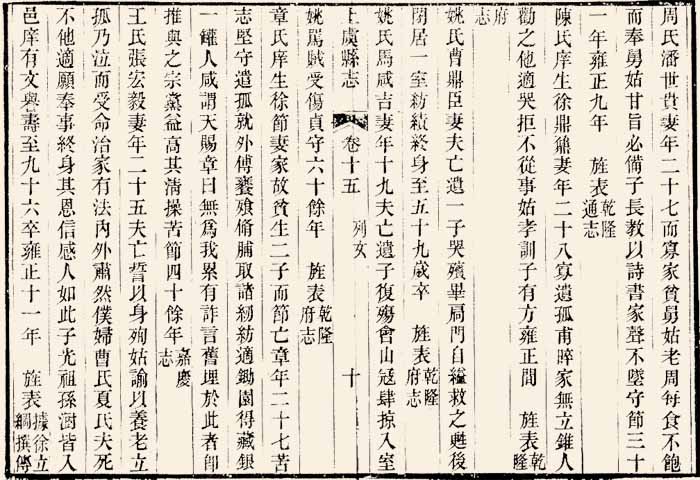 周氏潘世貴妻年二十七而寡家貧舅姑老周每食不飽
而奉舅姑甘旨必備子長教以詩書家聲不墜守節三十
一年雍正九年　旌表乾隆通志
陳氏庠生徐鼎鼐妻年二十八寡遺孤甫晬家無立錐人
勸之他適哭拒不從事姑孝訓子有方雍正間　旌表乾隆
府志
姚氏曹鼎臣妻夫亡遺一子哭殯畢扃門自縊救之甦後
閉居一室紡績終身至五十九歲卒　旌表乾隆府志
姚氏馬咸吉妻年十九夫亡遺子復殤會山寇肆掠入室
上虞縣志　卷十五　列女　十
姚罵賊受傷貞守六十餘年　旌表乾隆府志
章氏庠生徐節妻家故貧生二子而節亡章年二十七苦
志堅守遺孤就外傅饔飧脩脯取諸紉紡適鋤園得藏銀
一罐人咸謂天賜章曰無爲我累有詐言舊埋於此者卽
推與之宗黨益高其清操苦節四十餘年嘉慶志
王氏張宏毅妻年二十五夫亡誓以身殉姑諭以養老立
孤乃泣而受命治家有法內外肅然僕婦曹氏夏氏夫死
不他適願奉事終身其恩信感人如此子光祖孫涵皆入
邑庠有文譽壽至九十六卒雍正十一年　旌表據徐立綱撰傳